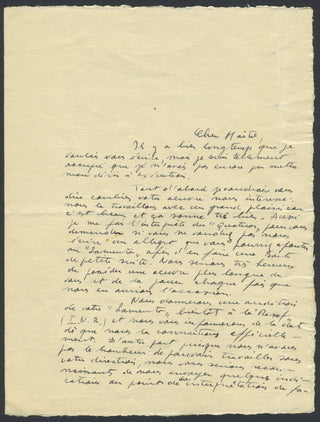 Cher Maître,
Il y a bien longtemps que je
voulais vous écrire, mais je suis tellement
occupé que je n'avais pas encore pu mettre
mon désir à exécution.
Tout d'abord je voudrais vous
dire combien votre œuvre nous intéresse.
nous la travaillons avec un grand plaisir car
c'est beau et ça sonne très bien. Aussi
je me fais l'interprète du "Quatuor" pour vous
demander si vous ne voudriez pas nous
écrire un allegro que vous pourriez ajouter
au "Lamento", afin d'en faire une sorte
de petite suite. Nous serions très heureux
de posséder une œuvre plus longue de
vous et de la jouer chaque fois que
nous en aurions l'occasion.
Nous donnerons une audition
de votre "Lamento" bientôt à la
(I.N.R.) et nous vous informerons de la date
dès que nous la connaîtrons officielle-
ment. D'autre part puisque nous n'avons
pas le bonheur de pouvoir travailler sous
votre direction, nous vous serions recon-
naissants de nous envoyer quelques indi-
cations au point de vue interprétation de fa-